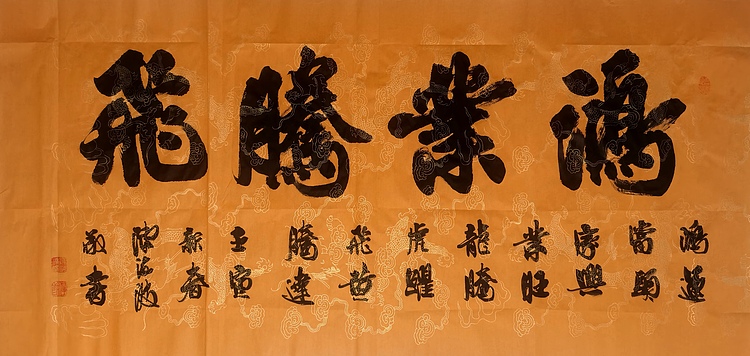 鴻業騰飛
鴻運
當頭
家興
業旺
龍騰
虎躍
飛黃
騰達
壬寅
新春
海波
敬書